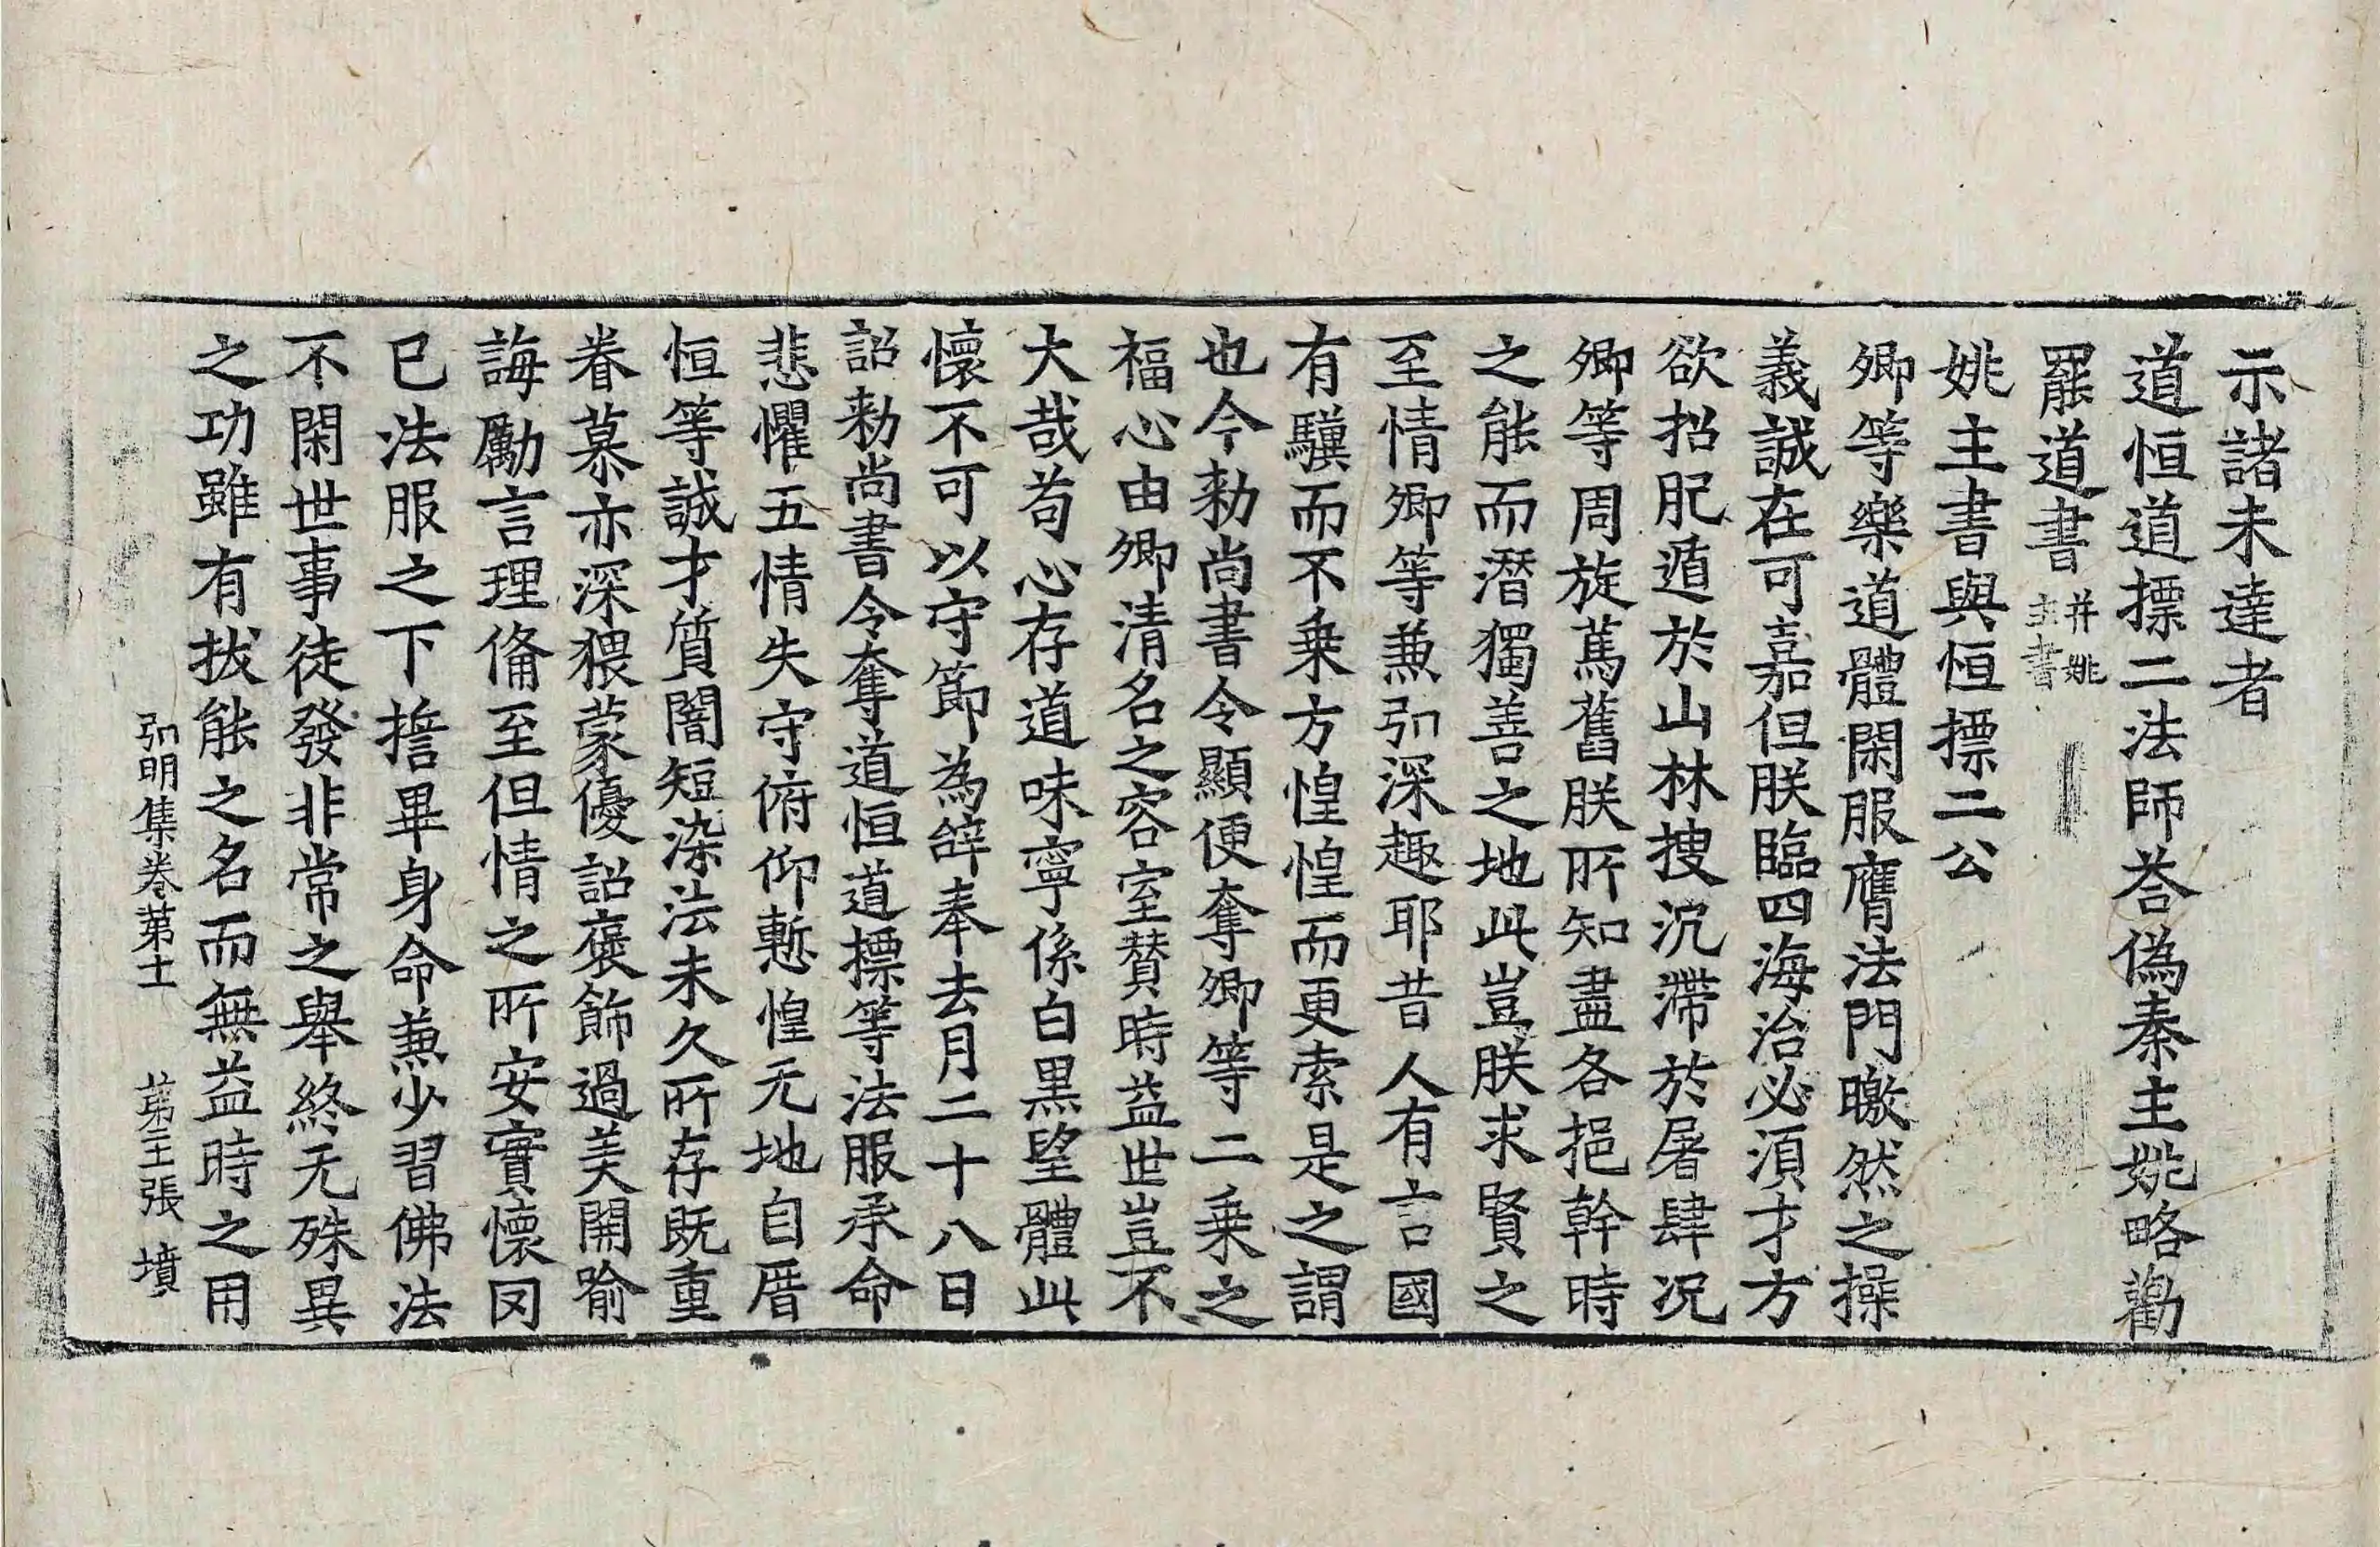 示諸未達者
道恒道摽二法師荅僞秦主姚略勸
罷道書并姚主書
姚主書與恒摽二公
卿等樂道體閑服膺法門曒然之操
義誠在可嘉但朕臨四海治必湏才方
欲招肥遁於山林搜沉滯於屠肆况
卿等周旋萬舊朕所知盡各挹幹時
之能而潛獨善之地此豈朕求賢之
至情卿等兼弘深趣耶昔人有言國
有驥而不乗方惶惶而更索是之謂
也今勑尚書令顯便奪卿等二乗之
福心由卿清名之容室賛時益世豈不
大哉苟心存道味寧係白黒望體此
懷不可以守節為辝奉去月二十八日
詔勑尚書令奪道恒道摽等法服承命
悲懼五情失守俯仰慙惶无地自厝
恒等誠才質闇短染法未久所存旣重
眷慕亦深猥蒙優詔褒飾過美開喻
誨勵言理俻至但情之所安實懷罔
已法服之下擔畢身命兼少習佛法
不閑世事徒發非常之舉終无殊異
之功雖有拔能之名而無益時之用
弘明集卷苐十一 苐三張 墳